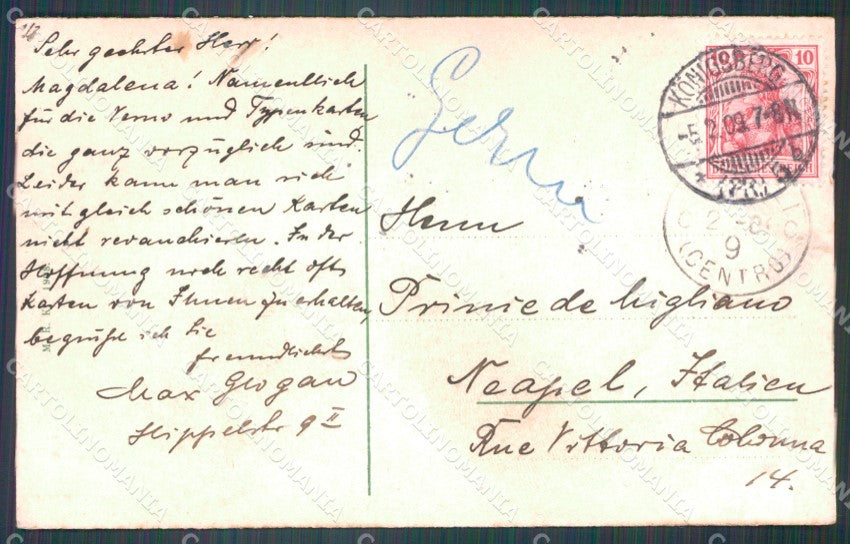 Sehr geehrter Herr!
Magdalena! Namentlich
für die Verno und Typenkarten
die ganz vorzüglich sind.
Leider kann man sich
mit gleich schönen Karten
nicht revanchieren. In der
Hoffnung noch recht oft
Karten von Ihnen zu erhalten,
begrüße ich Sie
freundlichst
Max Glogau
Hippelstr 9 II
M. R. K.
KÖNIGSBERG
5.2.09.7-8N.
(PR.)
b
10
9
(CENTRO)
Herrn
Principe de Migliano
Neapel, Italien
Rue Vittoria Colonna
14.
CARTOLINOMANIA